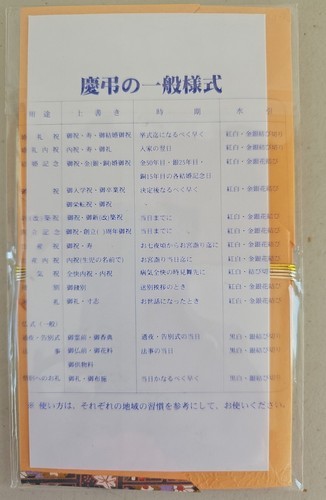 慶弔の一般様式
用途 上書き 時期 水引
婚礼祝 御祝・寿・御結婚御祝 挙式迄になるべく早く 紅白・金銀結び切り
婚礼内祝 内祝・寿・御礼 入家の翌日 紅白・金銀結び切り
結婚記念 御祝・金(銀・銅)婚御祝 金50年目・銀25年目・ 紅白・金銀花結び
銅15年目の各結婚記念日
祝 御入学祝・御卒業祝 決定後なるべく早く 紅白・金銀花結び
御栄転祝・御祝
御祝・御新(改)築祝 当日までに 紅白・金銀花結び
記念 御祝・創立(○)周年御祝 当日までに 紅白・金銀花結び
産祝 御祝・寿 お七夜頃からお宮詣り迄に 紅白・金銀花結び
内祝 内祝(生児の名前で) お宮詣り当日迄に 紅白・金銀花結び
気祝 全快内祝・内祝 病気全快の時見舞先に 紅白・結び切り
別 御餞別 送別挨拶のとき 紅白・金銀花結び
礼 御礼・寸志 お世話になったとき 紅白・金銀花結び
仏式(一般)
通夜・告別式 御霊前・御香典 通夜・告別式の当日 黒白・銀結び切り
法事 御仏前・御花料 法事の当日 黒白・銀結び切り
御供物料
へのお礼 御礼・御布施 当日かなるべく早く 黒白・銀結び切り
※ 使い方は、それぞれの地域の習慣を参考にして、お使いください。